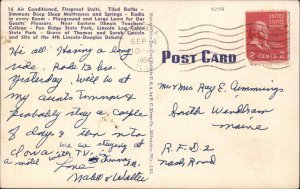 16 Air Conditioned, Fireproof Units. Tiled Baths -
Simmons Deep Sleep Mattresses and Springs - Radio
in every Room - Playground and Large Lawn for Our
Guests' Pleasure. Near Eastern Illinois Teachers
College - Fox Ridge State Park, Lincoln Log Cabin
State Park - Grave of Thomas and Sarah Lincoln
and Site of the 4th Lincoln-Douglas Debate.
925N
SEP
195
POST CARD
2 CENTS 2
Hi all: Having a long
ride. Rode 13 hrs.
yesterday. Will be at
my aunts tomorrow &
probably stay a couple
of days & then into
Iowa. We are staying at
a motel with T.V.
Love
& Walter
Mr & Mrs Ray E. Cummings
South Windham
Maine
R.F.D. 2
Nash Road